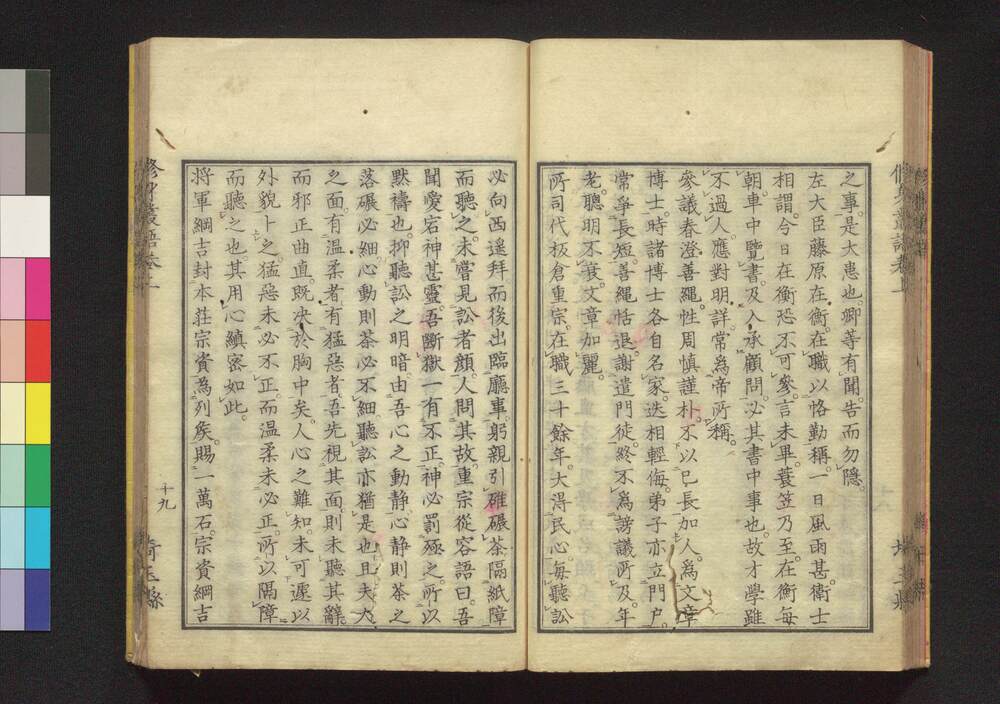 之事。是大患也。卿等有聞。告而勿隱。
左大臣藤原在衡。在職以恪勤稱。一日風雨甚。衛士
相謂。今日在衡恐不可參。言未畢。蓑笠乃至。在衡每
朝。車中覽書。及入承顧問。必其書中事也。故才學雖
不過人。應對明詳。常爲帝所稱。
參議春澄善繩。性周慎謹朴。不以已長加人。爲文章
博士。時諸博士各自名家。迭相輕侮。弟子亦立門戶。
常爭長短。善繩恬退。謝遣門徒。終不爲謗議所及。年
老。聰明不衰。文章加麗。
所司代板倉重宗。在職三十餘年。大得民心。每聽訟
必向西遙拜。而後出臨廳事。躬親引碓碾茶。隔紙障
而聽之。未嘗見訟者顏。人問其故。重宗從容語曰。吾
聞愛宕神甚靈。吾斷獄一有不正。神必罰殛之。所以
默禱也。抑聽訟之明暗。由吾心之動靜。心靜則茶之
落碾必細。心動則茶必不細。聽訟亦猶是也。且夫人
之面。有溫柔者。有猛惡者。吾先視其面。則未聽其辭
而邪正曲直。既决於胸中矣。人心之難知。未可遽以
外貌卜之。猛惡未必不正。而溫柔未必正。所以隔障
而聽之也。其用心縝密如此。
將軍綱吉封本莊宗資為列侯。賜一萬石。宗資綱吉
修身叢語卷上
十九
埼玉縣